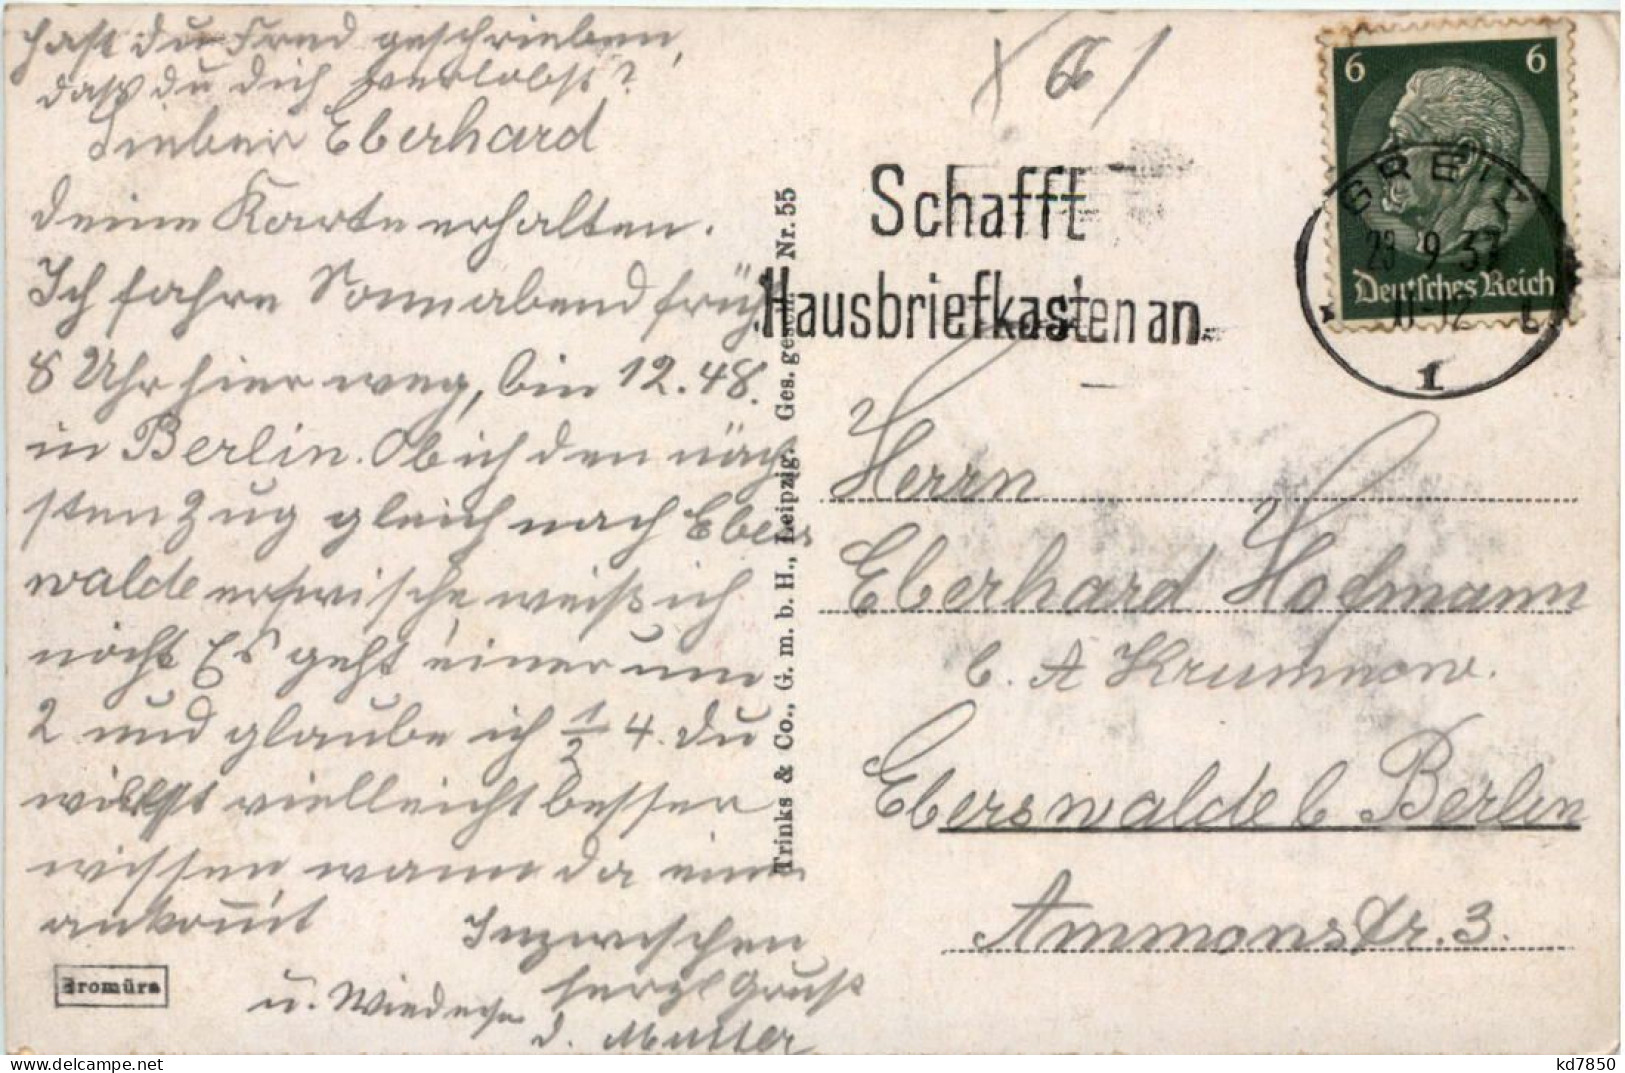 hast du Fred geschrieben,
dass du dich verlobst?
Lieber Eberhard
deine Karte erhalten.
Ich fahre Sonnabend früh
8 Uhr hier weg, bin 12.48.
in Berlin. Ob ich den näch
sten Zug gleich nach Ebers
walde erwische, weiß ich
nicht Es geht einer um
2 und glaube ich 1/2 4. du
willst vielleicht besser
wissen wann da einer
ankommt
Inzwischen
herzl Gruß
u. Wiedersehn
d. Mutter
Bromüra
Trinks & Co., G. m. b. H., Leipzig. Ges. gesch. Nr. 55
Schafft
Hausbriefkasten an
6 6
Deutsches Reich
GREIZ
23 9 37
11-12
1
Herrn
Eberhard Hofmann
b. A Krumnow.
Eberswalde b Berlin
Ammonstr. 3.
kd7850